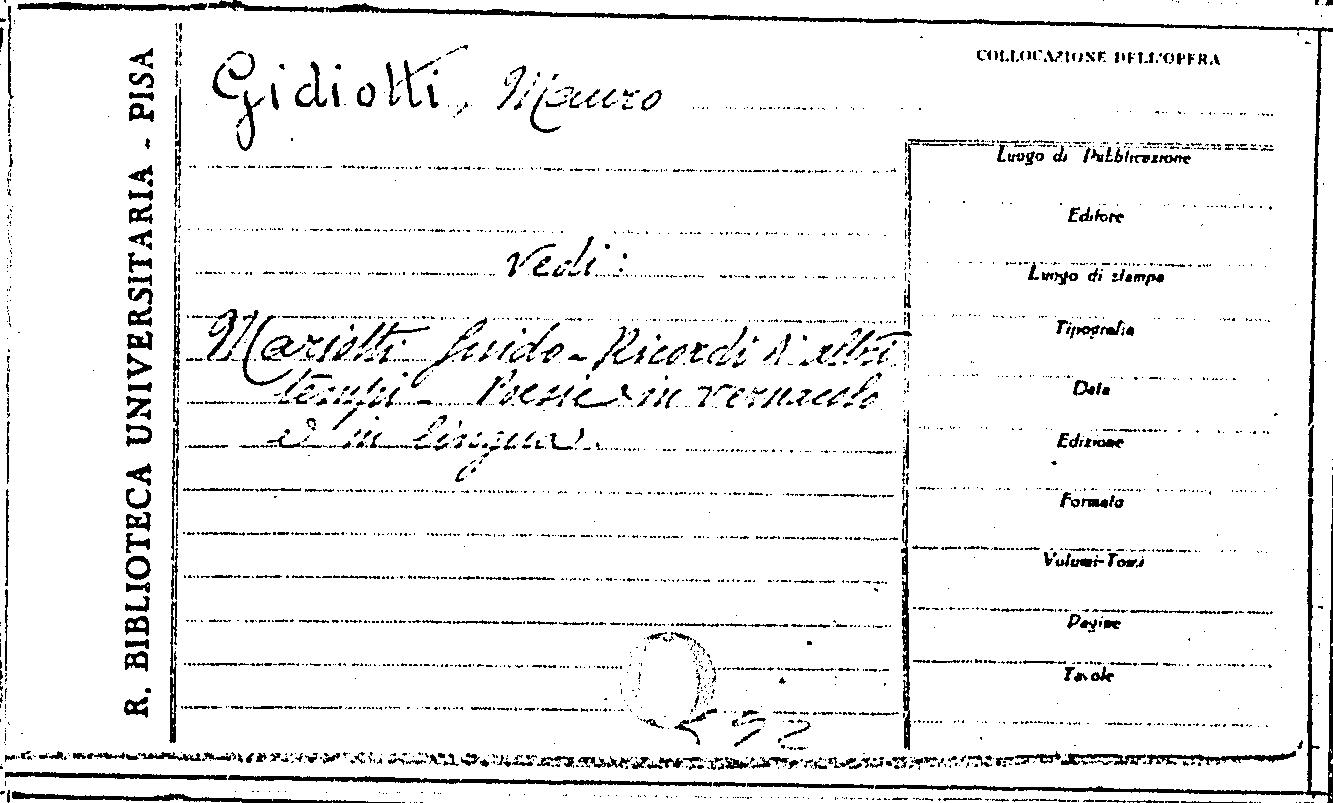 R. BIBLIOTECA UNIVERSITARIA - PISA
Gidiotti, Mauro
COLLOCAZIONE DELL'OPERA
vedi:
Mariotti Guido - Ricordi di altri
tempi - Poesie in vernacolo
e in lingua.
Luogo di Pubblicazione
Editore
Luogo di stampa
Tipografia
Data
Edizione
Formato
Volumi-Tomi
Pagine
Tavole
592